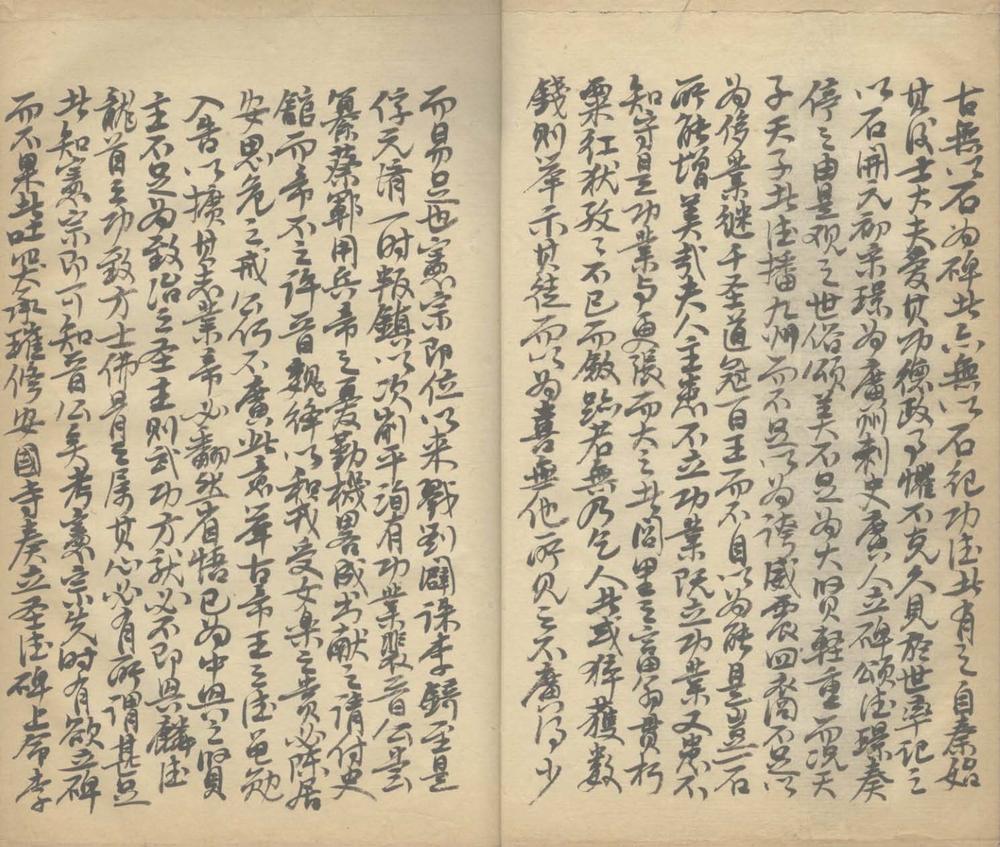 古無以石為碑者亦無以石紀功德者有之自秦始
其後士大夫愛其功德政事懼不克久見於世率記之
以石開元初宋璟為廣州刺史廣人立碑頌德璟奏
停之由是观之世俗頌美不足為大賢輕重而况天
子天子者德播九州而不足以為誇威震四裔不足以
為侈業继千圣道冠百王而不自以為能是豈一石
所能增美哉夫人主患不立功業既立功業又患不
知守是功業与更張而大之者閭里之富翁貫朽
粟紅狀孜々不已而斂跡若無乃乞人者或猝獲数
錢則举示其徒而以為喜無他所见之不廣得少
而易足也憲宗即位以来戮劉闢誅李錡至是
俘元濟一时叛鎮以次削平洵有功業裴晉公
纂蔡鄆用兵帝之憂勤機略成书献之请付史
館而帝不之许晉魏绛以和戎受女樂之賞必陳居
安思危之戒公何不廣此意举古帝王之德黾勉
入告以擴其志業帝必翻然省悟已為中興之賢
主不足為致治之圣主則武功方就必不即興麟德
龍首之功致方士佛骨之屬其心必有所謂甚足
者知憲宗即可知晉公矣考憲宗先时有欲立碑
而不果者吐突承璀修安國寺奏立圣德碑上命李